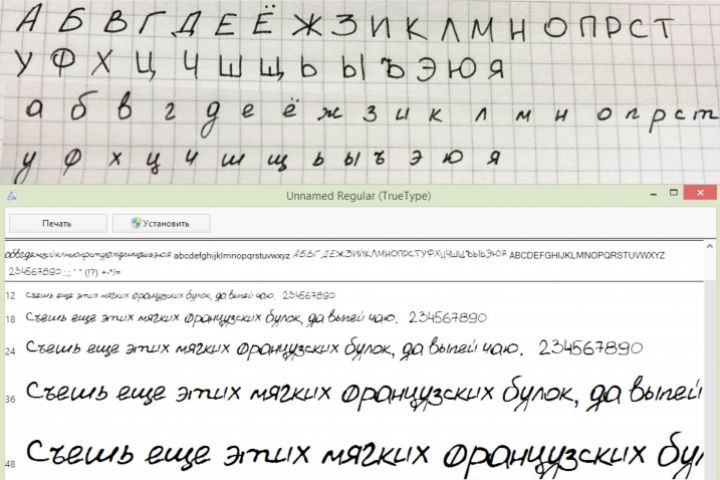 А Б В Г Д Е Ё Ж З И К Л М Н О П Р С Т
У Ф Х Ц Ч Ш Щ Ь Ы Ъ Э Ю Я
а б в г д е ё ж з и к л м н о п р с т
у ф х ц ч ш щ ь ы ъ э ю я
Unnamed Regular (TrueType)
Печать Установить
abcdefghijklmnopqrstuvwxyz АБВГ ДЕЖЗИЙКЛМНОПРСТУФХЦЧШЩЪЫЬЭЮЯ ABCDEFGHIJKLMNOPQRSTUVWXYZ
234567890.:,; ' " (!?) +-*/=
12 Съешь еще этих мягких французских булок, да выпей чаю. 234567890
18 Съешь еще этих мягких французских булок, да выпей чаю. 234567890
24 Съешь еще этих мягких французских булок, да выпей чаю. 234567890
36 Съешь еще этих мягких французских булок, да выпей
48 Съешь еще этих мягких французских бул